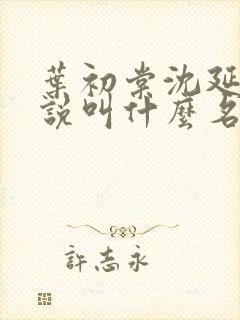 葉初棠沈延
說叫什麼名
許志永